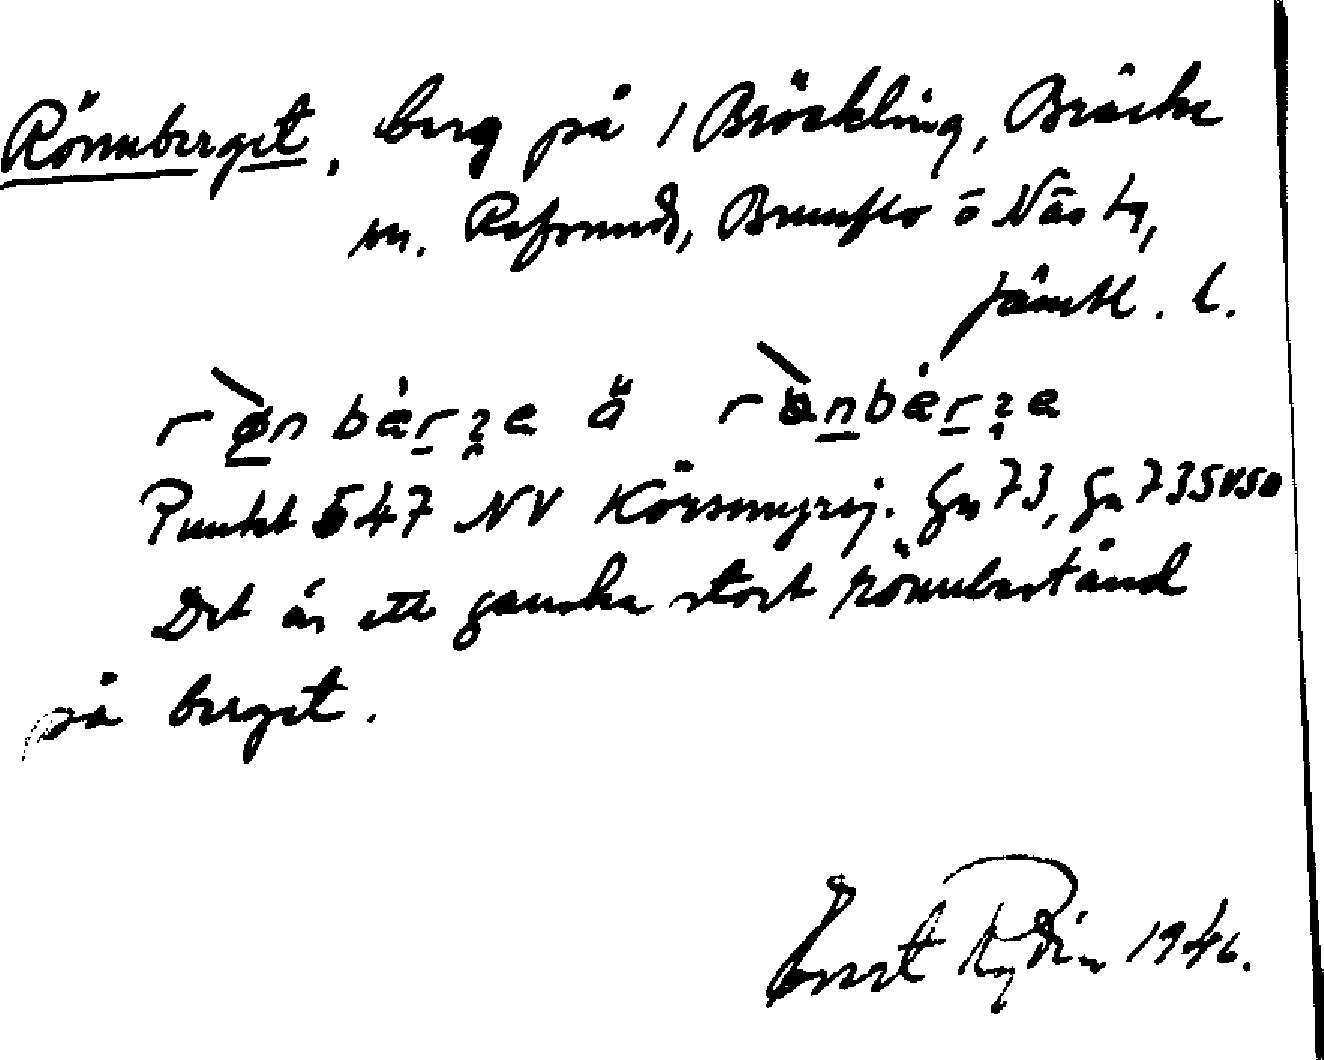 Rönnberget, berg på 1 Bräckling, Bräcke
sn. Refsunds, Brunflo o Näs tg,
Jämtl. l.
rønbærʒe å rönbærʒe
Punkt 547 NV Körsmyrsj. Gn 73, Gn 73SVSO
Det är ett ganska stort rönnbestånd
på berget.
Ernst Rydin 1946.